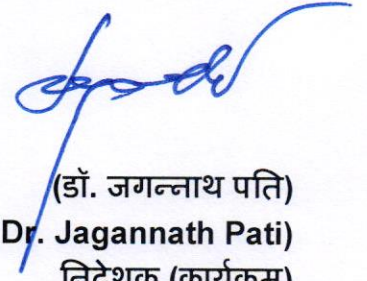 (डॉ. जगन्नाथ पति)
Dr. Jagannath Pati)
निदेशक (कार्यक्रम)